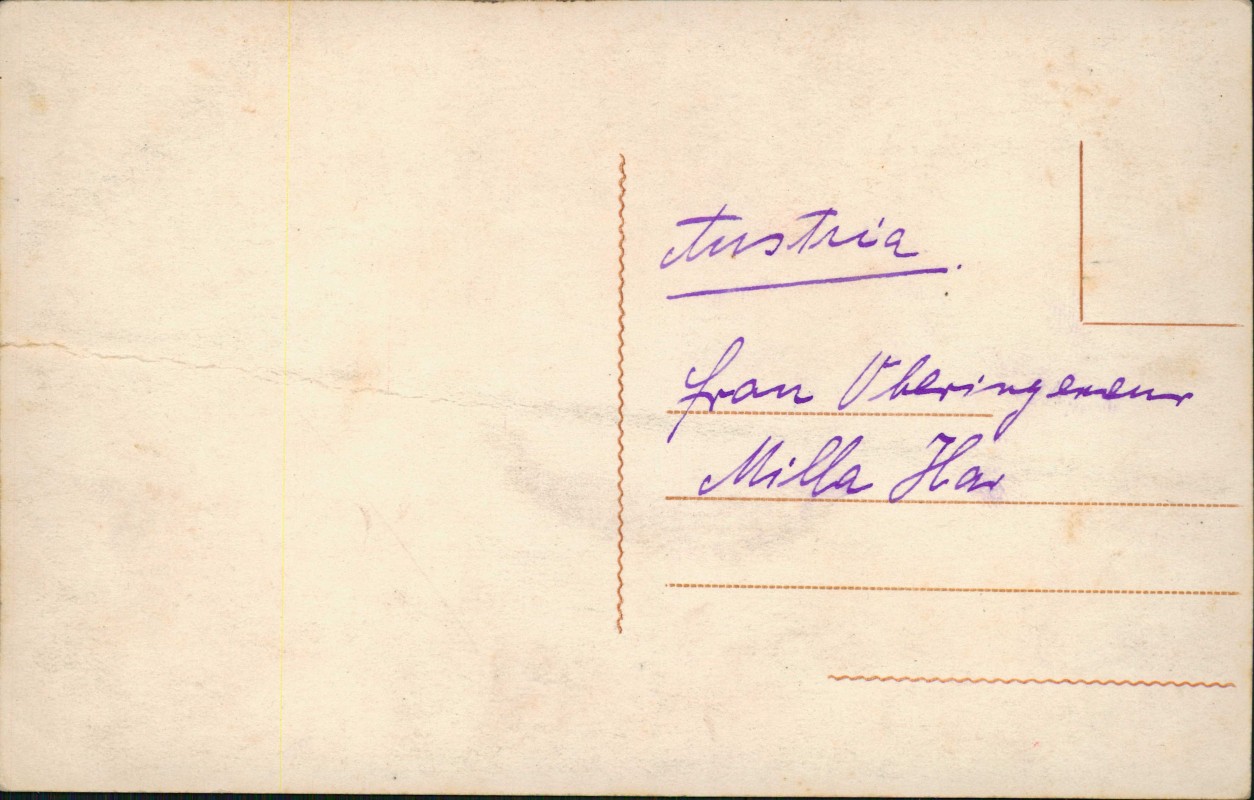 Austria.
Frau Oberingeneur
Milla Har